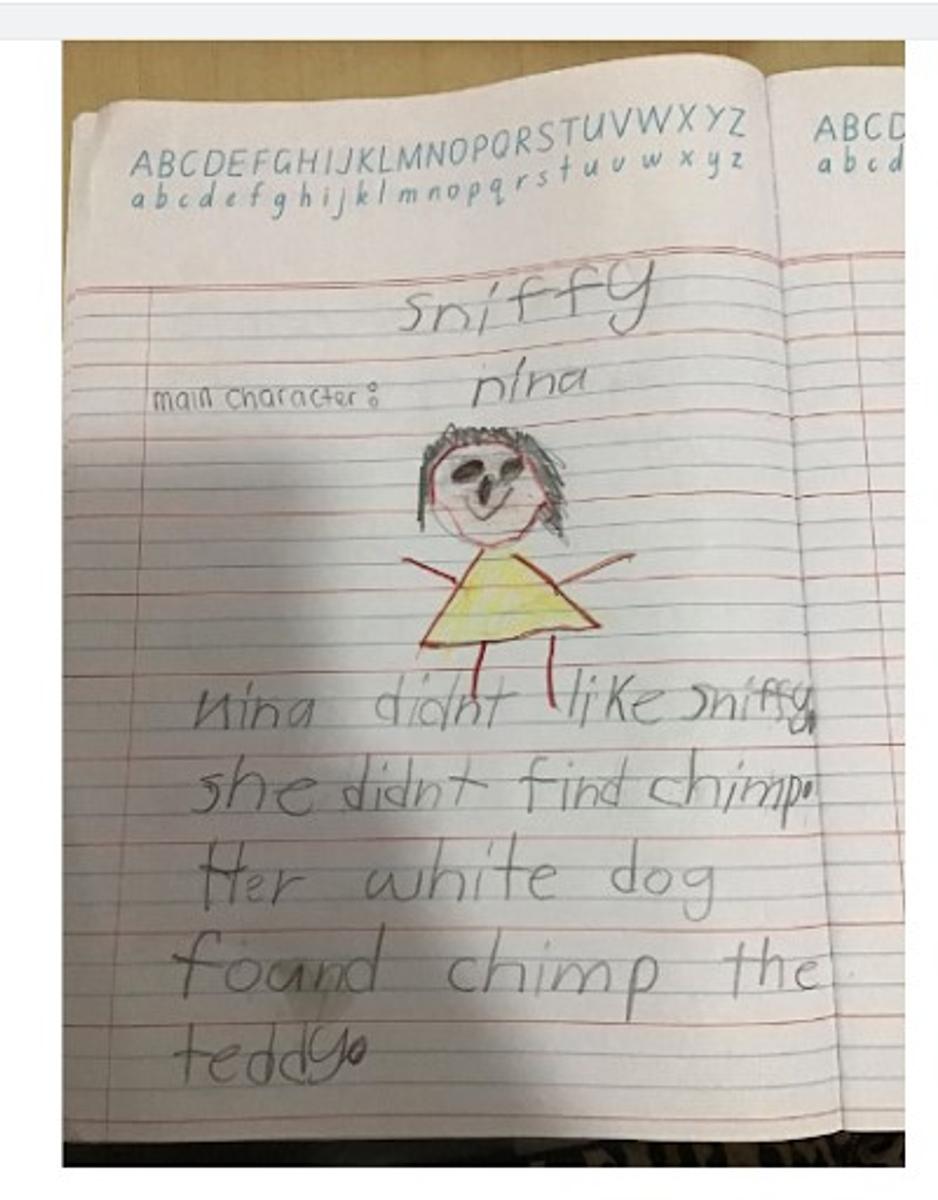 ABCDEFGHIJKLMNOPQRSTUVWXYZ
abcdefghijklmnopqrstuvwxyz
ABCD
abcd
sniffy
main character: nina
nina didnt like sniffy,
she didnt find chimp.
Her white dog
found chimp the
teddy.